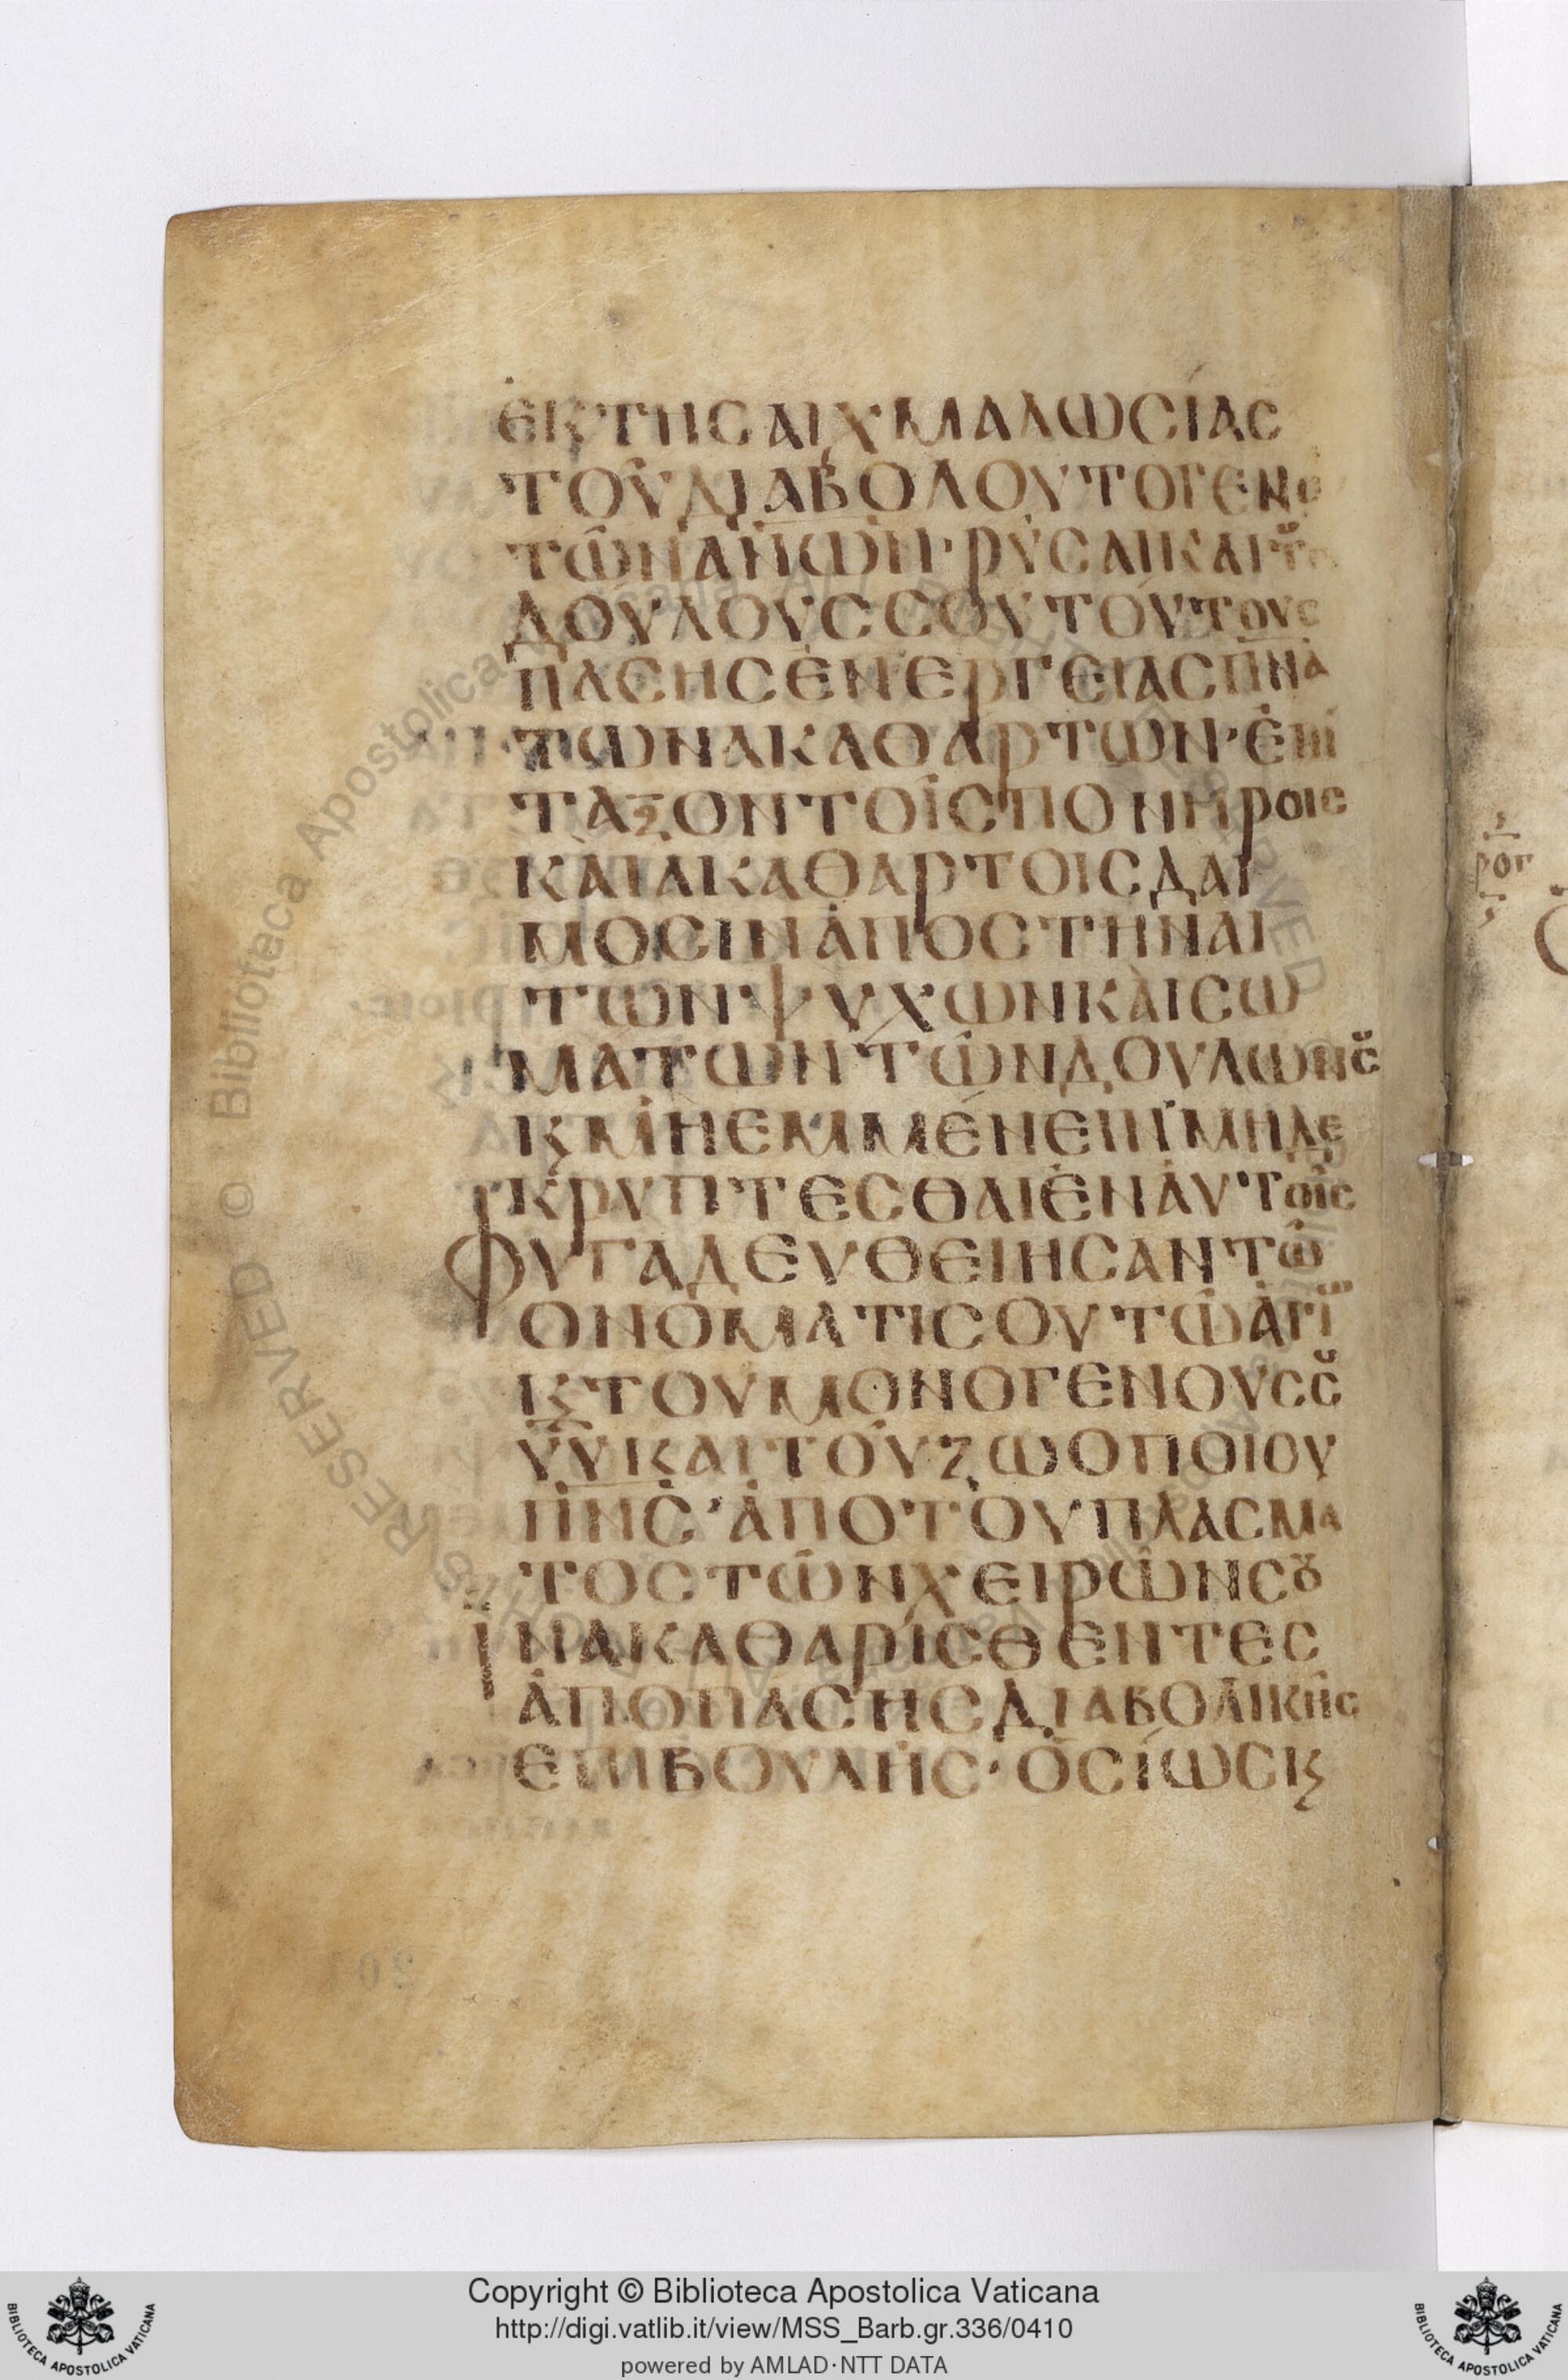 ἐκ τῆς αἰχμαλωσίας
τοῦ διαβόλου τὸ γένο
τῶν ἀν̅ω̅ν· ῥῦσαι καὶ τοὺ
δούλους σου τούτους
πάσης ἐνεργείας πν̅α
των ἀκαθάρτων· ἐπί
ταξον τοῖς πονηροῖς
καὶ ἀκαθάρτοις δαί
μοσιν ἀποστῆναι
τῶν ψυχῶν καὶ σω
μάτων τῶν δούλων σȣ
κ̀ μὴ ἐμμένειν μηδὲ
κρύπτεσθαι ἐν αὐτοῖς
Φυγαδευθείησαν τῶ
ὀνόματί σου τῶ ἁγίω
κ̀ τοῦ μονογενοῦς σȣ
υ̅υ̅ καὶ τοῦ ζωοποιοῦ
π̅ν̅ς· ἀπὸ τοῦ πλάσμα
τος τῶν χειρῶν σȣ
ἵνα καθαρισθέντες
ἀπὸ πάσης διαβολικῆς
ἐπιβουλῆς· ὁσίως κ̀
ρογ
Copyright © Biblioteca Apostolica Vaticana
http://digi.vatlib.it/view/MSS_Barb.gr.336/0410
powered by AMLAD·NTT DATA
BIBLIOTECA APOSTOLICA VATICANA
BIBLIOTECA APOSTOLICA VATICANA